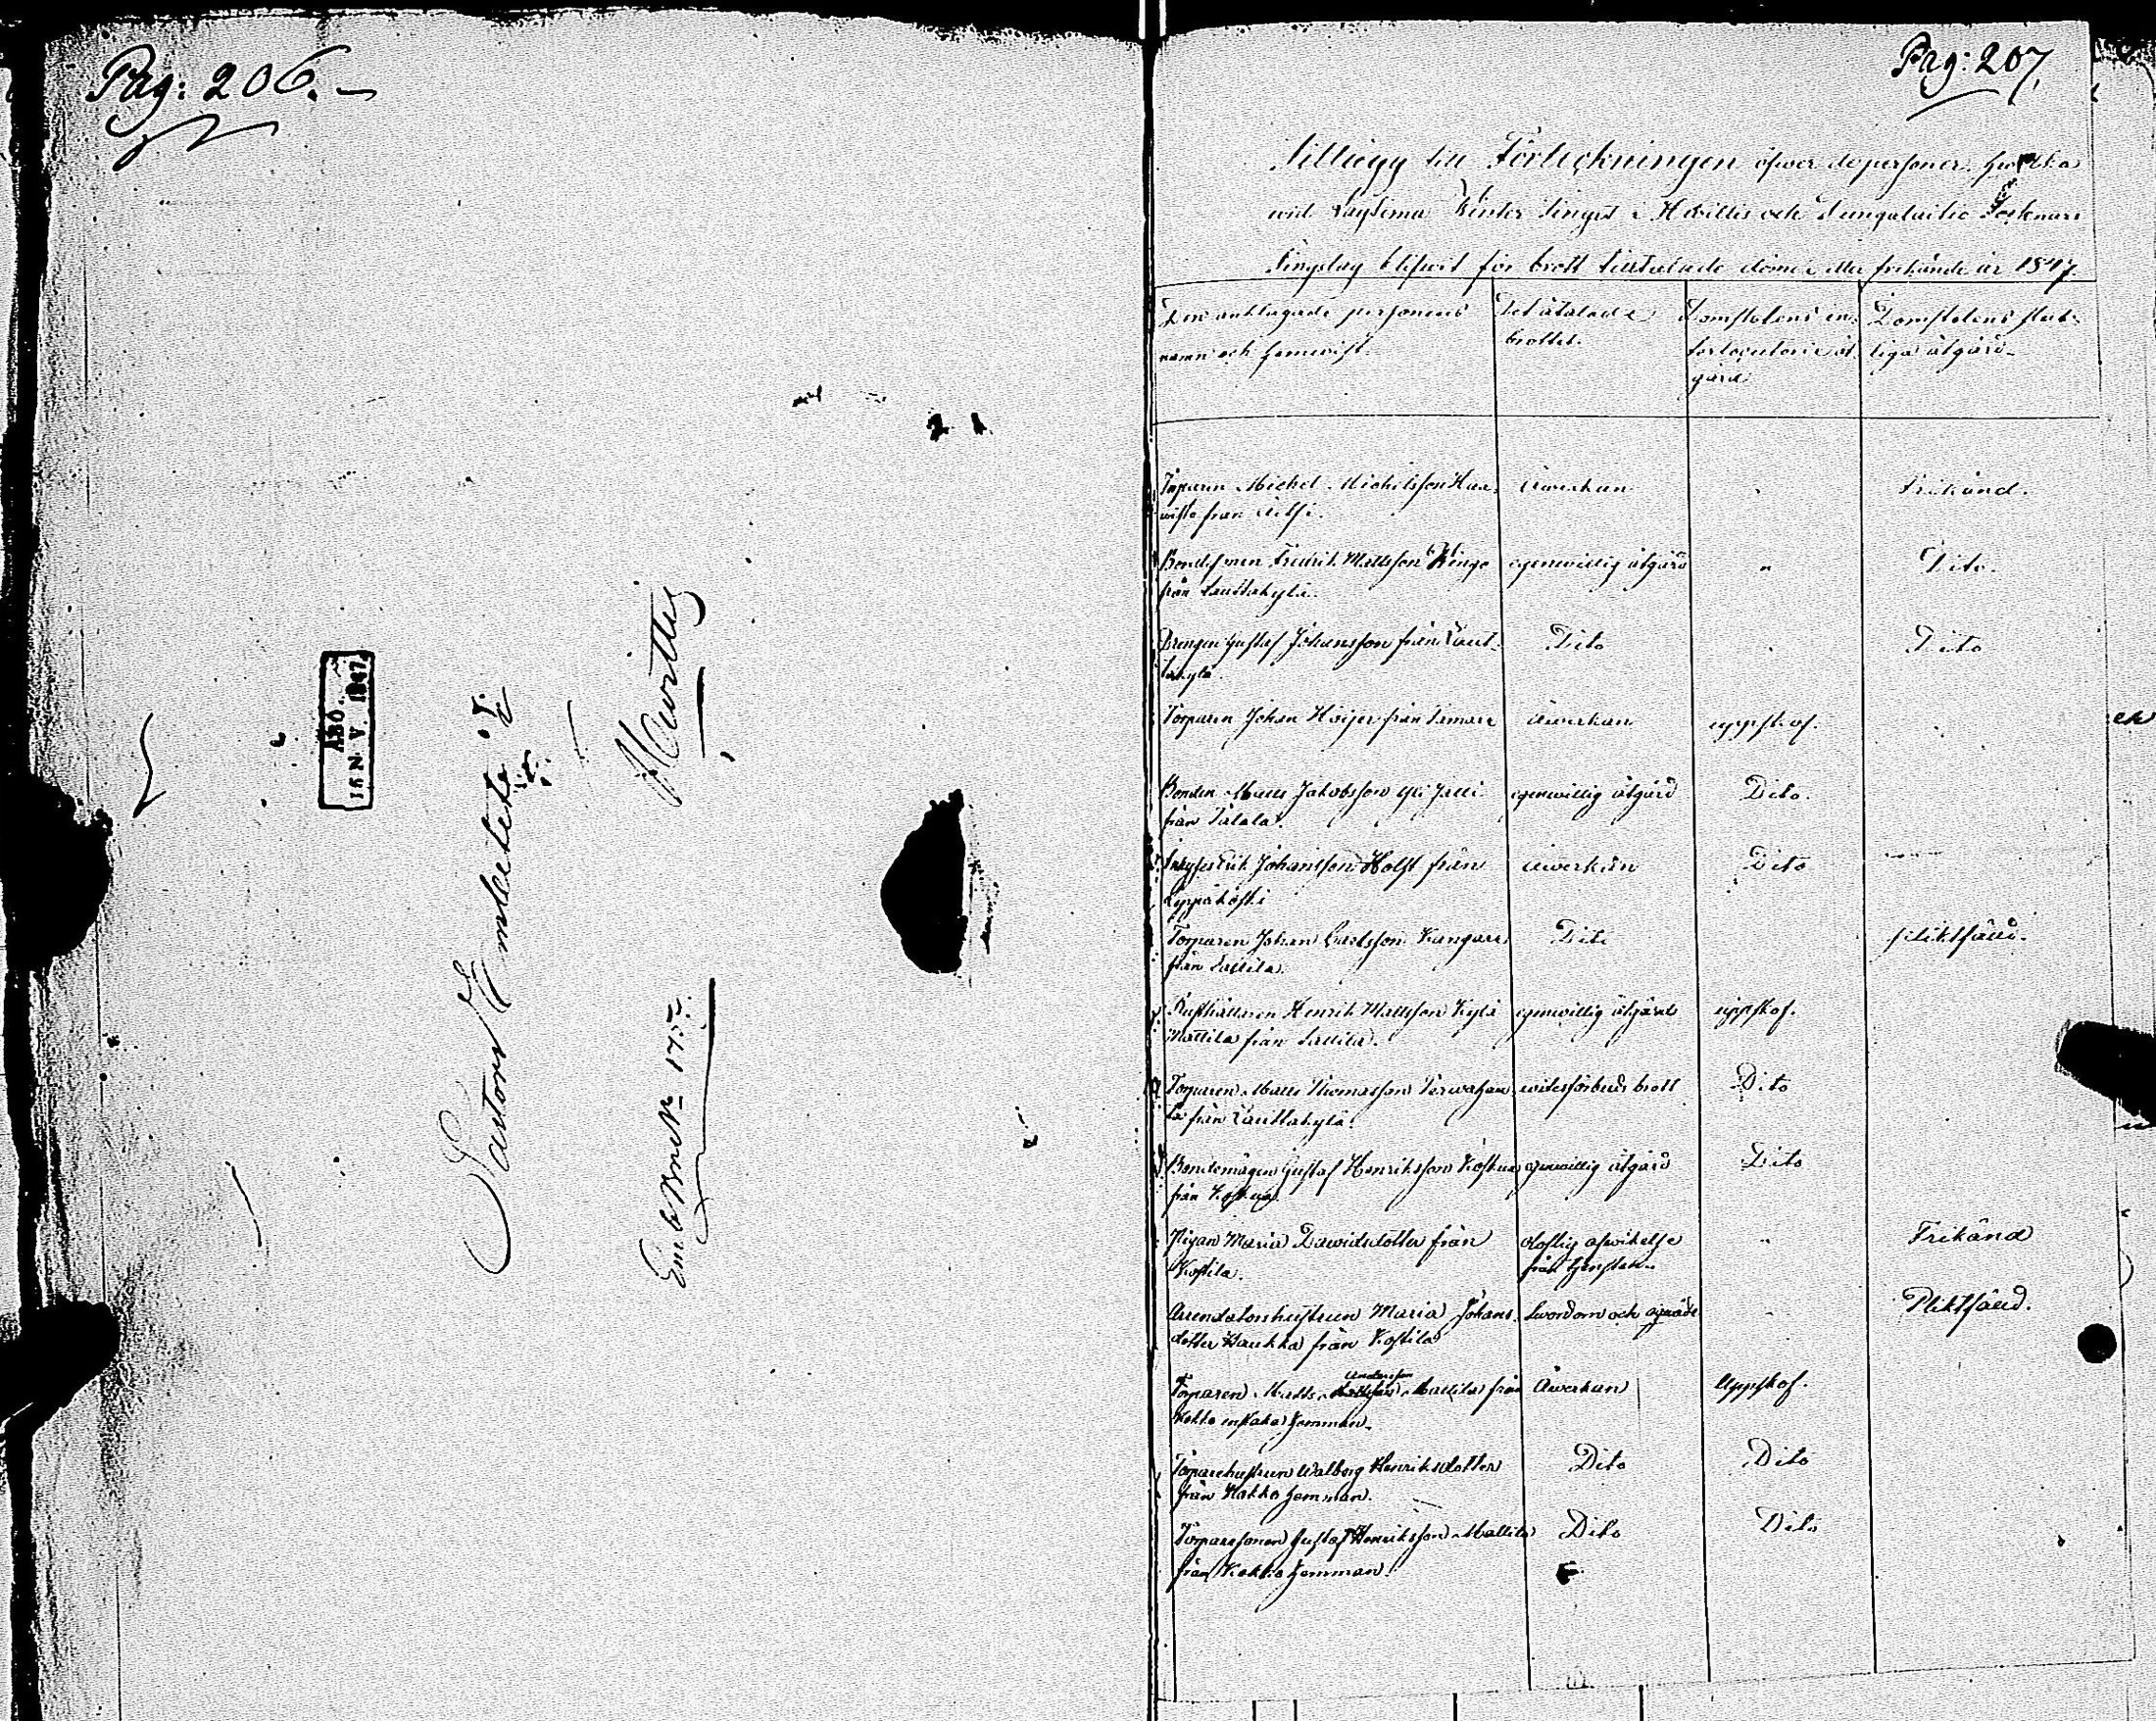 Pag: 206.
ÅBO.
16 NOV. 1847
Pastors Embetet i
Hwittis
Emb Bref No 175.
Pag: 207.
Tillägg till Förteckningen öfwer de personer, hwilka
wid Lagtima Winter Tinget i Hwittis och Pungalaitio Socknars
Tingslag blifwit för brott tilltalade, dömde eller frikände år 1847.
Den anklagade personens
namn och hemwist.
Det åtalade
brottet.
Domstolens in-
terlocutorie åt
gärd
Domstolens slut-
liga åtgärd.
Torparen Michel Michelsson Haa-
wisto från
Åwerkan
Frikänd.
Bondesonen Fredrik Mattsson Ringo
från Lauttakylä.
egenwillig åtgärd
"
Dito.
Drengen Gustaf Johansson från Laut-
takylä.
Dito
Dito
Torparen Johan Höijer från
Åwerkan
uppskof.
Bonden Matts Jakobsson Yli Jalli
från Jalala.
egenwillig åtgärd
Dito.
Erik Johansson Holst från
Leppäkoski
Åwerkan
Dito
Torparen Johan Carlsson Kangari
från Sallila.
Dito
pliktfäld.
Rusthållaren Henrik Mattsson Kylä
Mattila från Sallila.
egenwillig åtgärd
uppskof.
Torparen Matts Thomasson
från Lauttakylä.
witesförbuds brott
Dito
Bondemågen Gustaf Henriksson
från
egenwillig åtgärd
Dito
Pigan Maria Dawidsdotter från
Kostila.
oloflig afwikelse
från tjensten.
"
Frikänd
Arendatorshustrun Maria Johans-
dotter Haukka från Kostila
Swordom och
Pliktfäld.
Andersson
Torparen Matts Mattila från
Kokko hemman.
Åwerkan
Uppskof.
Torparehustrun Walborg Henriksdotter
från Kokko hemman.
Dito
Dito
Torparesonen Gustaf Henriksson Mattila
från Kokko hemman.
Dito
Dito